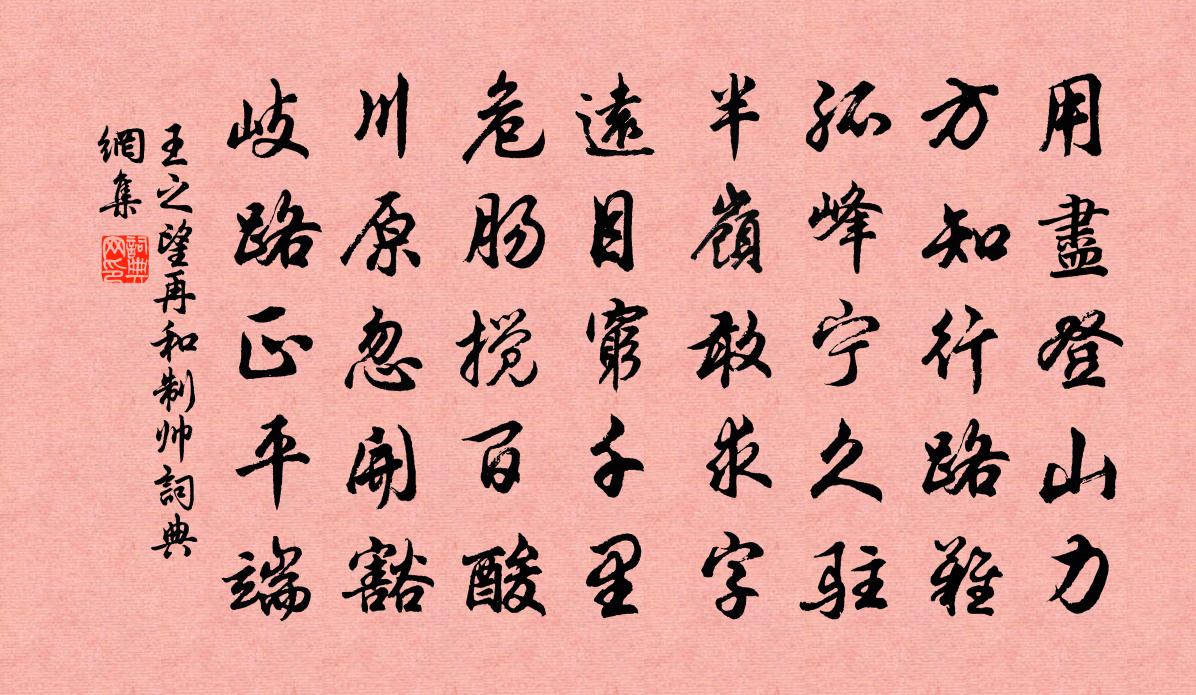 用盡登山力
方知行路難
孤峰宁久駐
半嶺敢求字
遠目窮千里
危肠搅百酸
川原忽開豁
岐路正平端
王之望再和制帅詞典
網集
詞典网印